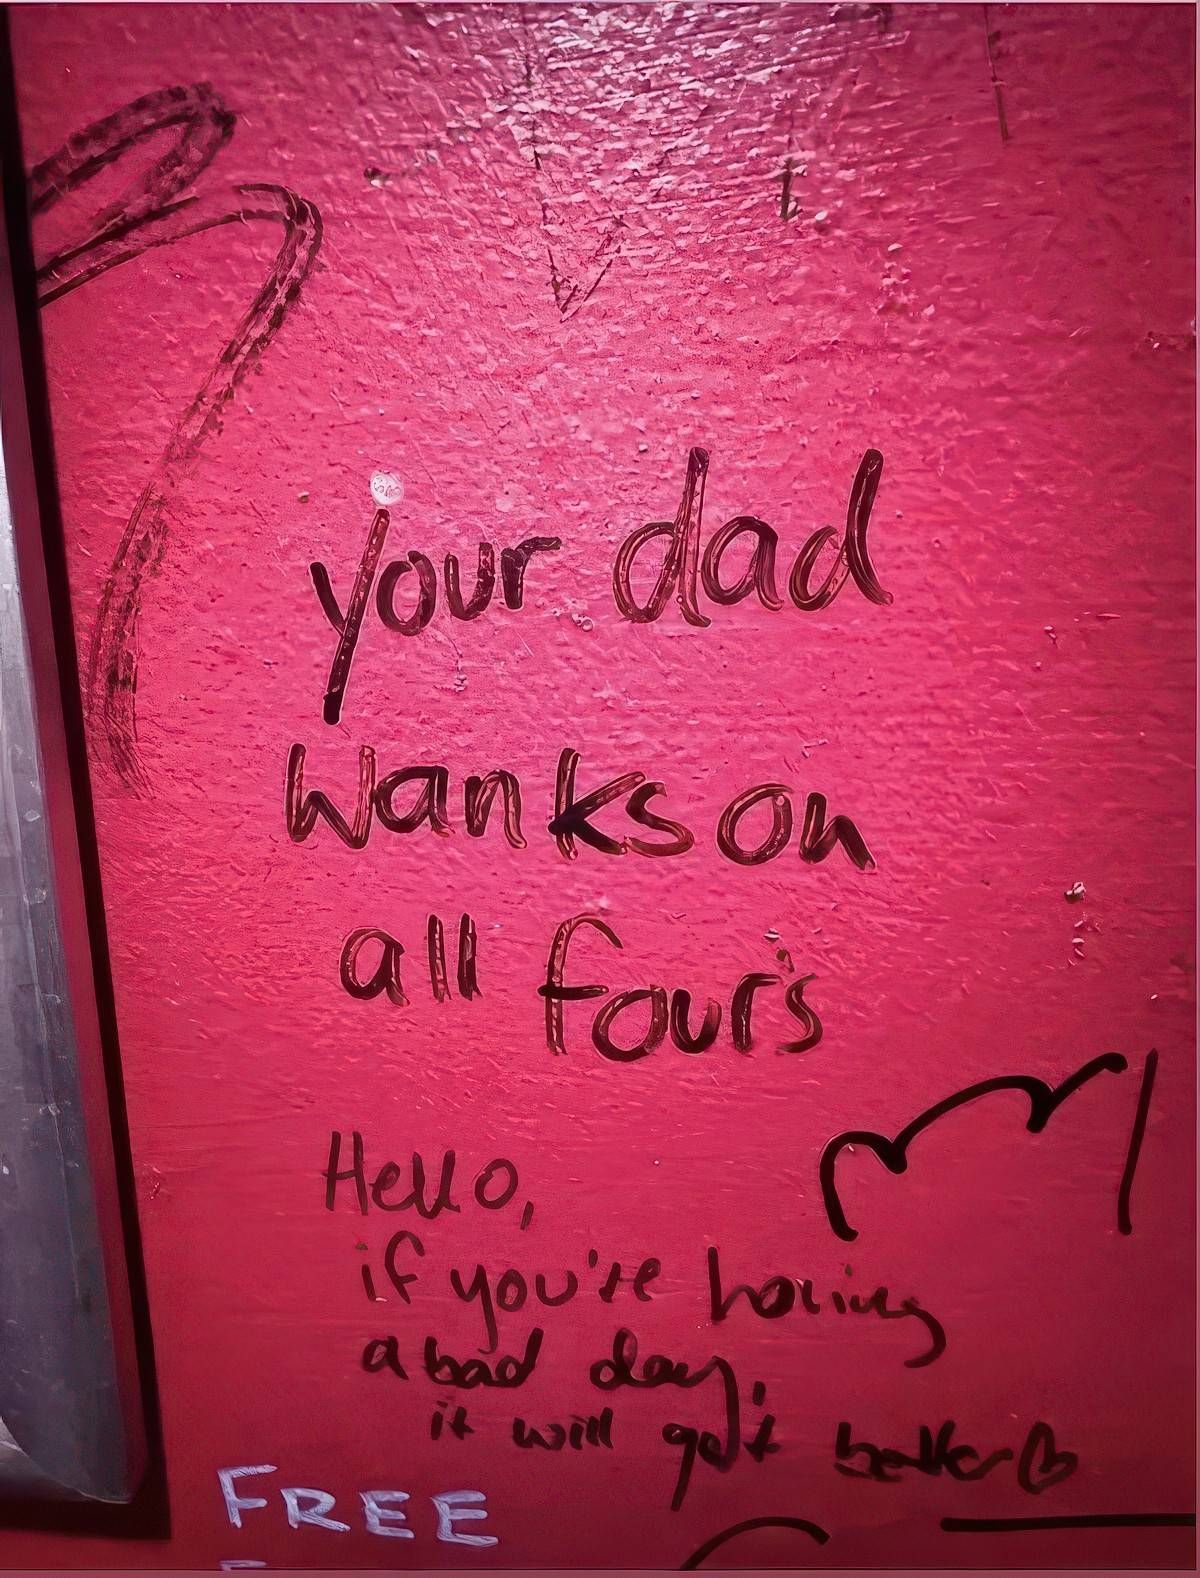 your dad
wanks on
all four's
Hello,
if you're having
a bad day,
it will get better
FREE